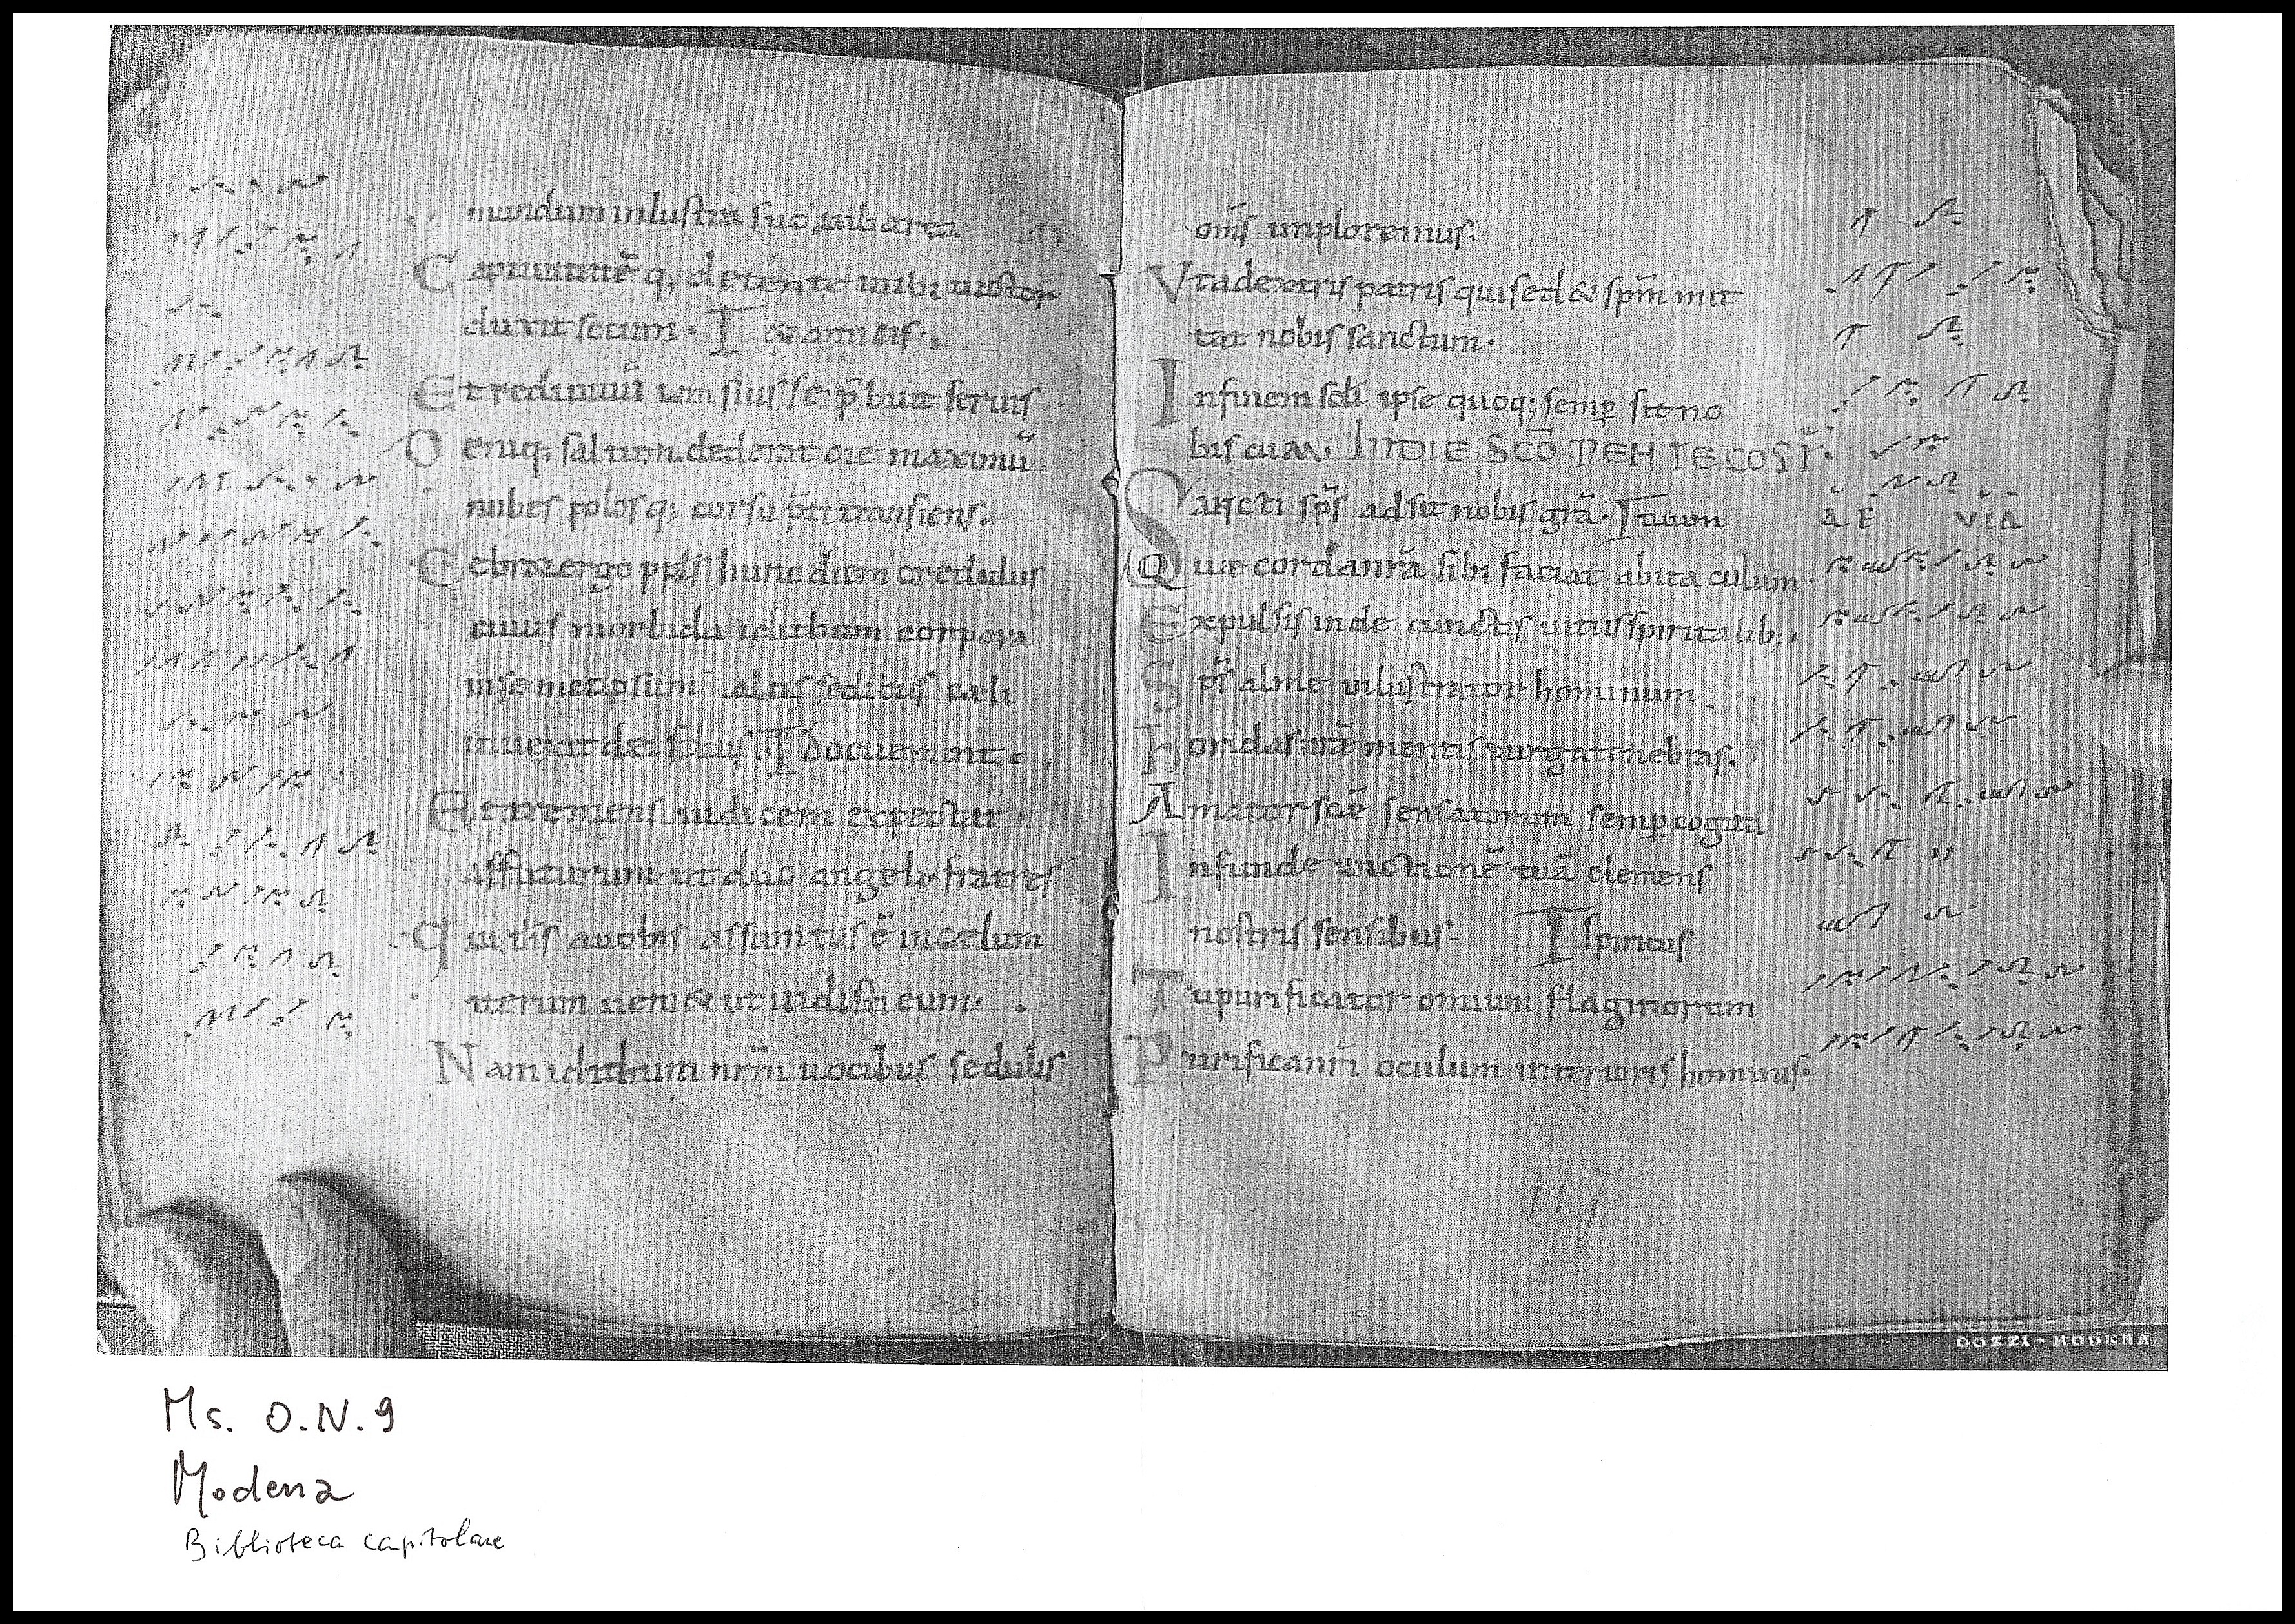 duxit secum. I & omneis.
Et redimuū
nubes polosq; cursu p̄ti transiens.
Celebra ergo ppls hunc diem credulus
cuius morbida idithum corpora
in semetipsum altis sedibus cæli
inuexit dei filius. I docuerunt.
Et tremens iudicem expectat
affuturum ut duo angeli fratres
Qui ih̄s auobis assumtus ē incelum
iterum ueni& ut uidisti eum
Nam idithum nrm̄ uocibus sedulis
om̄s imploremus;
Vtadextris patris quised& spm̄ mit
tat nobis sanctum.
Infinem scl̄i ipse quoq; semp sit no
bis cum. IN DIE SCO PENTECOST̄.
Sancti sp̄s adsit nobis grā. I
A E VIA
Quæ cordanrā sibi faciat abitaculum.
Expulsis inde cunctis uitiis spiritalib;.
Sp̄s alme inlustrator hominum
horridas nr̄æ mentis purgatenebras.
Amator scē sensatorum semp cogita
Infunde unctionē tuā clemens
nostris sensibus. I spiritus
Tupurificator omium flagitiorum
Purificanrī oculum interioris hominis.
BOZZI - MODENA
Ms. O.IV.9
Modena
Biblioteca capitolare